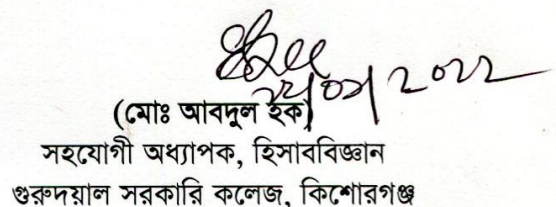 (মোঃ আবদুল হক)
সহযোগী অধ্যাপক, হিসাববিজ্ঞান
গুরুদয়াল সরকারি কলেজ, কিশোরগঞ্জ